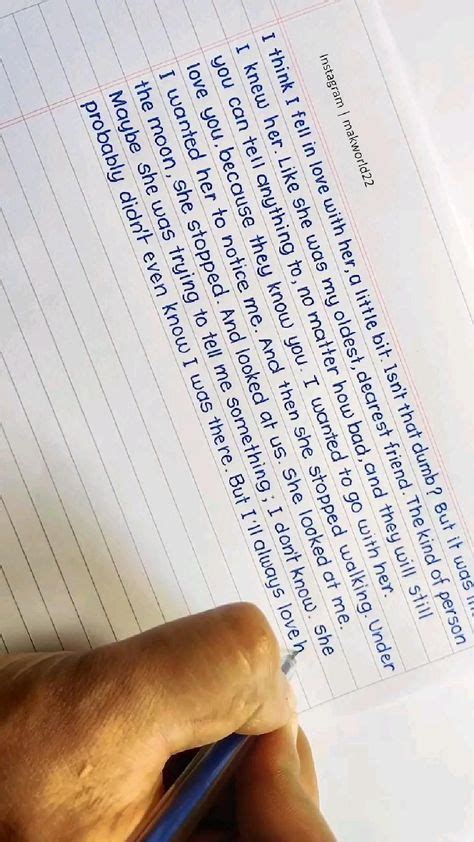 Instagram | makworld22
I think I fell in love with her, a little bit. Isn't that dumb? But it was li
I knew her. Like she was my oldest, dearest friend. The kind of person
you can tell anything to, no matter how bad, and they will still
love you, because they know you. I wanted to go with her.
I wanted her to notice me. And then she stopped walking. Under
the moon, she stopped. And looked at us. She looked at me.
Maybe she was trying to tell me something; I don't know. She
probably didn't even know I was there. But I'll always love h